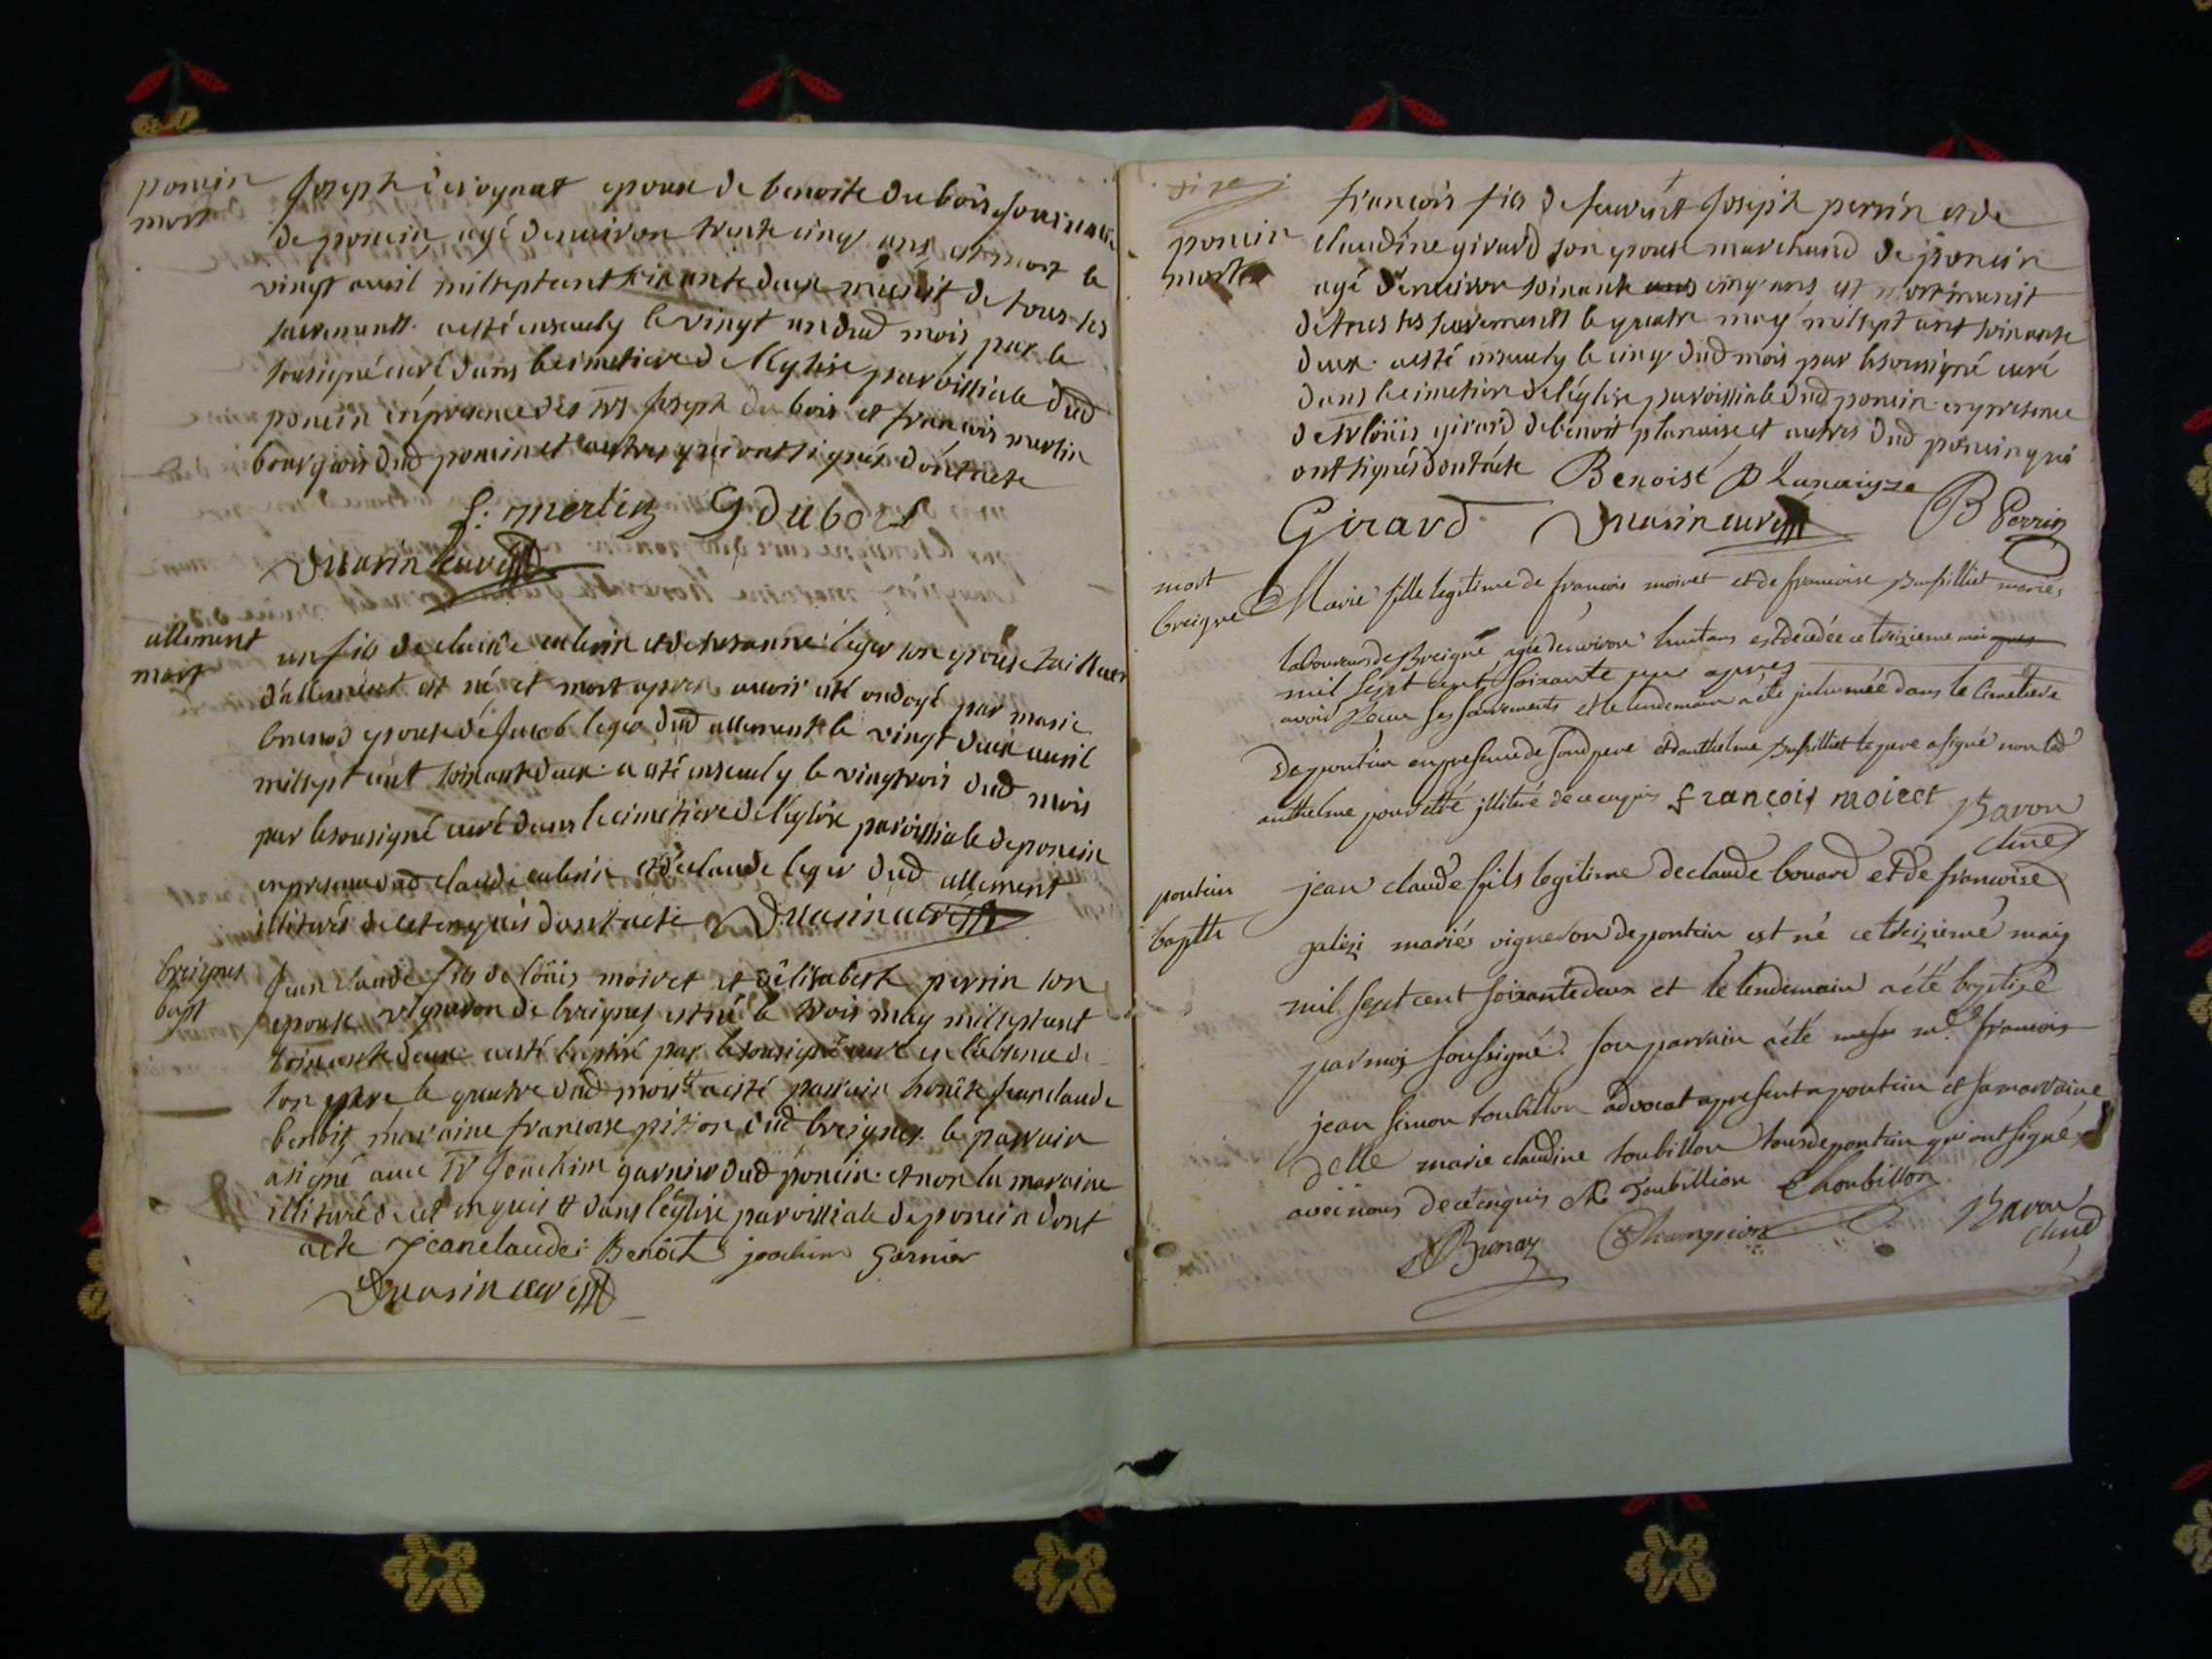 poncin
mort
Joseph époux de benoite du bois journalier
de poncin agé denuiron trente cinq ans est mort le
vingt auril milseptcent soixante deux munit de tous ses
sacrements a esté enseuely le vingt un dud mois par le
sousigné curé dans le cimetiere de l'eglise paroissiale dud
poncin en presence des srs Joseph du bois et françois merlin
bourgeois dud poncin et autres qui ont signés dont acte
f: merlin J dubois
curé
allement
mort
un fils de claude et de susanne leger son epouse tailleur
d'allement est né et mort apres auoir eté ondoyé par marie
brunod epouse de Jacob leger dud allement le vingt deux auril
milsept cent soixante deux a esté enseuely le vingttrois dud mois
par le sousigné curé dans le cimetiere de l'eglise paroissiale de poncin
en presence dud claude et de claude leger dud allement
illiterés de ce enquis dont acte curé
breignes
bapt
Jean claude fils de loüis moiret et d'elisabeth perrin son
epouse vigneron de breignes est né le trois may milseptcent
soixante deux a esté baptisé par le sousigné curé en l'absence de
son pere le quatre dud mois a esté parrain honête Jean claude
benoit maraine françoise pizon dud breignes le parrain
a signé auec sr Joachim garnier dud poncin et non la maraine
illiterée de ce enquis dans l'eglise paroissiale de poncin dont
acte Jean claude Benoit joachim Garnier
curé
poncin
mort
françois fils de feu Joseph perrin et de
claudine girard son epouse marchand de poncin
agé denuiron soixante ans cinq ans est mort munit
de tous ses sacrements le quatre may milsept cent soixante
deux a esté enseuely le cinq dud mois par le sousigné curé
dans le cimetiere de l'eglise paroissiale dud poncin en presence
de sr loüis girard de benoit planaise et autres dud poncin qui
ont signés dont acte Benoist Planaigze
Girard curé B Perrin
mort
breigne
Marie fille legitime de françois moiret et de françoise mariés
laboureurs de Breigne agée d'environ huit ans est decedée ce treizieme mai
mil sept cent soixante apres
avoir recu ses sacrements et le lendemain a été inhumée dans le cimetiere
de pontin en presence de sond pere et d'anthelme le pere a signé non led
anthelme pour etre illiteré de ce enquis françois moiret Bavou
curé
pontin
baptte
jean claude fils legitime de claude bouard et de francoise
galizi mariés vigneron de pontin est né ce treizieme may
mil sept cent soixante deux et le lendemain a été baptisé
par moi soussigné. son parrain a été mr françois
jean simon toubillon advocat a present a pontin et sa marraine
delle marie claudine toubillon tous de pontin qui ont signé
avec nous de ce enquis M Toubillion Thoubillon
Brunay Champion Bavou
curé